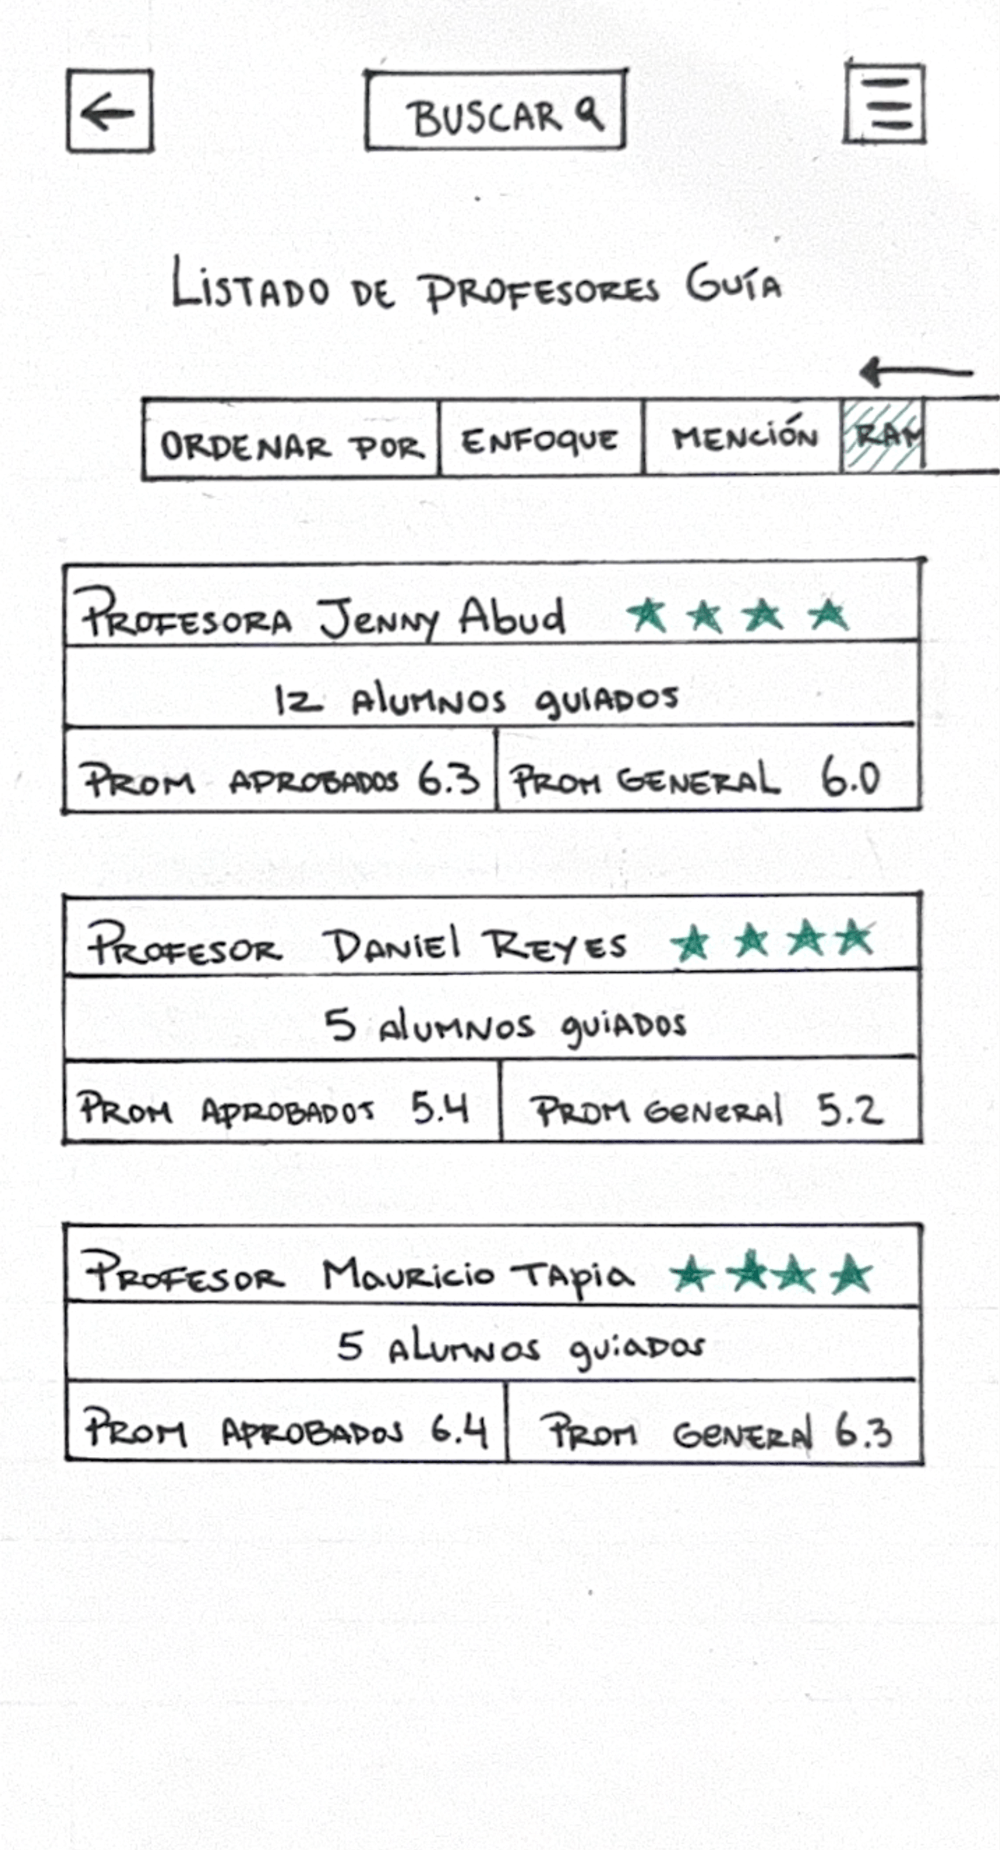 BUSCAR
LISTADO DE PROFESORES GUÍA
ORDENAR POR ENFOQUE MENCIÓN RAM
PROFESORA JENNY Abud
12 ALUMNOS guiADOS
PROM APROBADOS 6.3 PROM GENERAL 6.0
PROFESOR DANIEL REYES
5 AlUMNOS guiADOS
PROM APROBADOS 5.4 PROM GENERAL 5.2
PROFESOR MAURICIO TApia
5 ALUMNOS guiaDOS
PROM APROBADOS 6.4 PROM GENERAl 6.3